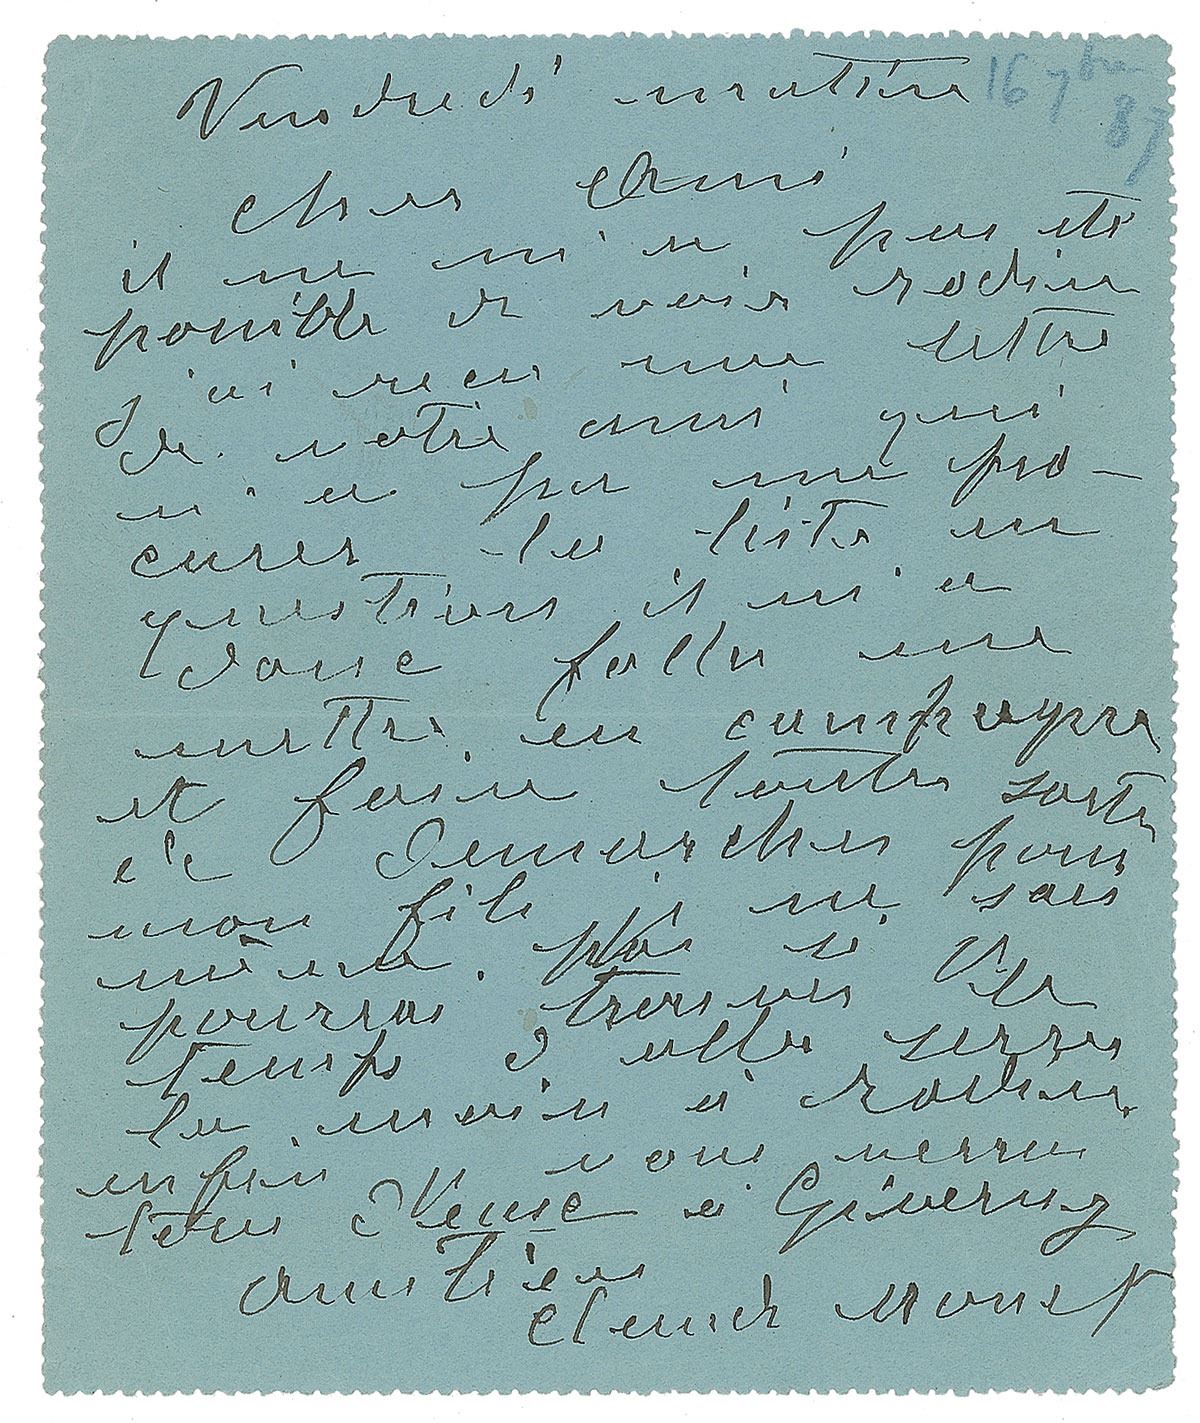 Vendredi matin
16 7bre
87
cher Ami
il ne m'a pas été
possible de voir rodin
j'ai reçu une lettre
de votre ami qui
n'a pu me pro-
curer la liste en
question il m'a
donc fallu me
mettre en campagne
et faire toutes sortes
de demarches pour
mon fils, je ne sais
même pas si je
pourrai trouver le
temps d'aller serrer
la main à rodin,
enfin vous verrai
tous à Giverny
Amitiés
Claude Monet